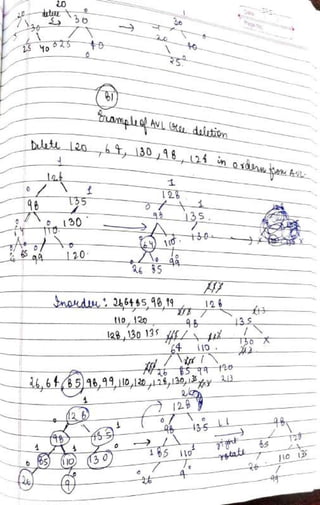 20 delete 20 30
30 30 20 40
25 40 25 40 25
B1
Example of AVL tree deletion
Delete 120, 64, 130, 98, 128 in order from AVL
1 1
128 128
98 135 98 135
64 110 130 64 110 130
26 85 99 120 26 85 99
Inorder: 26 64 85, 98, 99
110, 120
128, 130 135
128
98 135
64 110 130
26 85 99 120
26, 64, 85, 98, 99, 110, 120, 128, 130, 135
128 128 98
98 135 98 135 LL 85 128
85 110 130 85 110 right 26 110 135
26 9 26 rotate 99